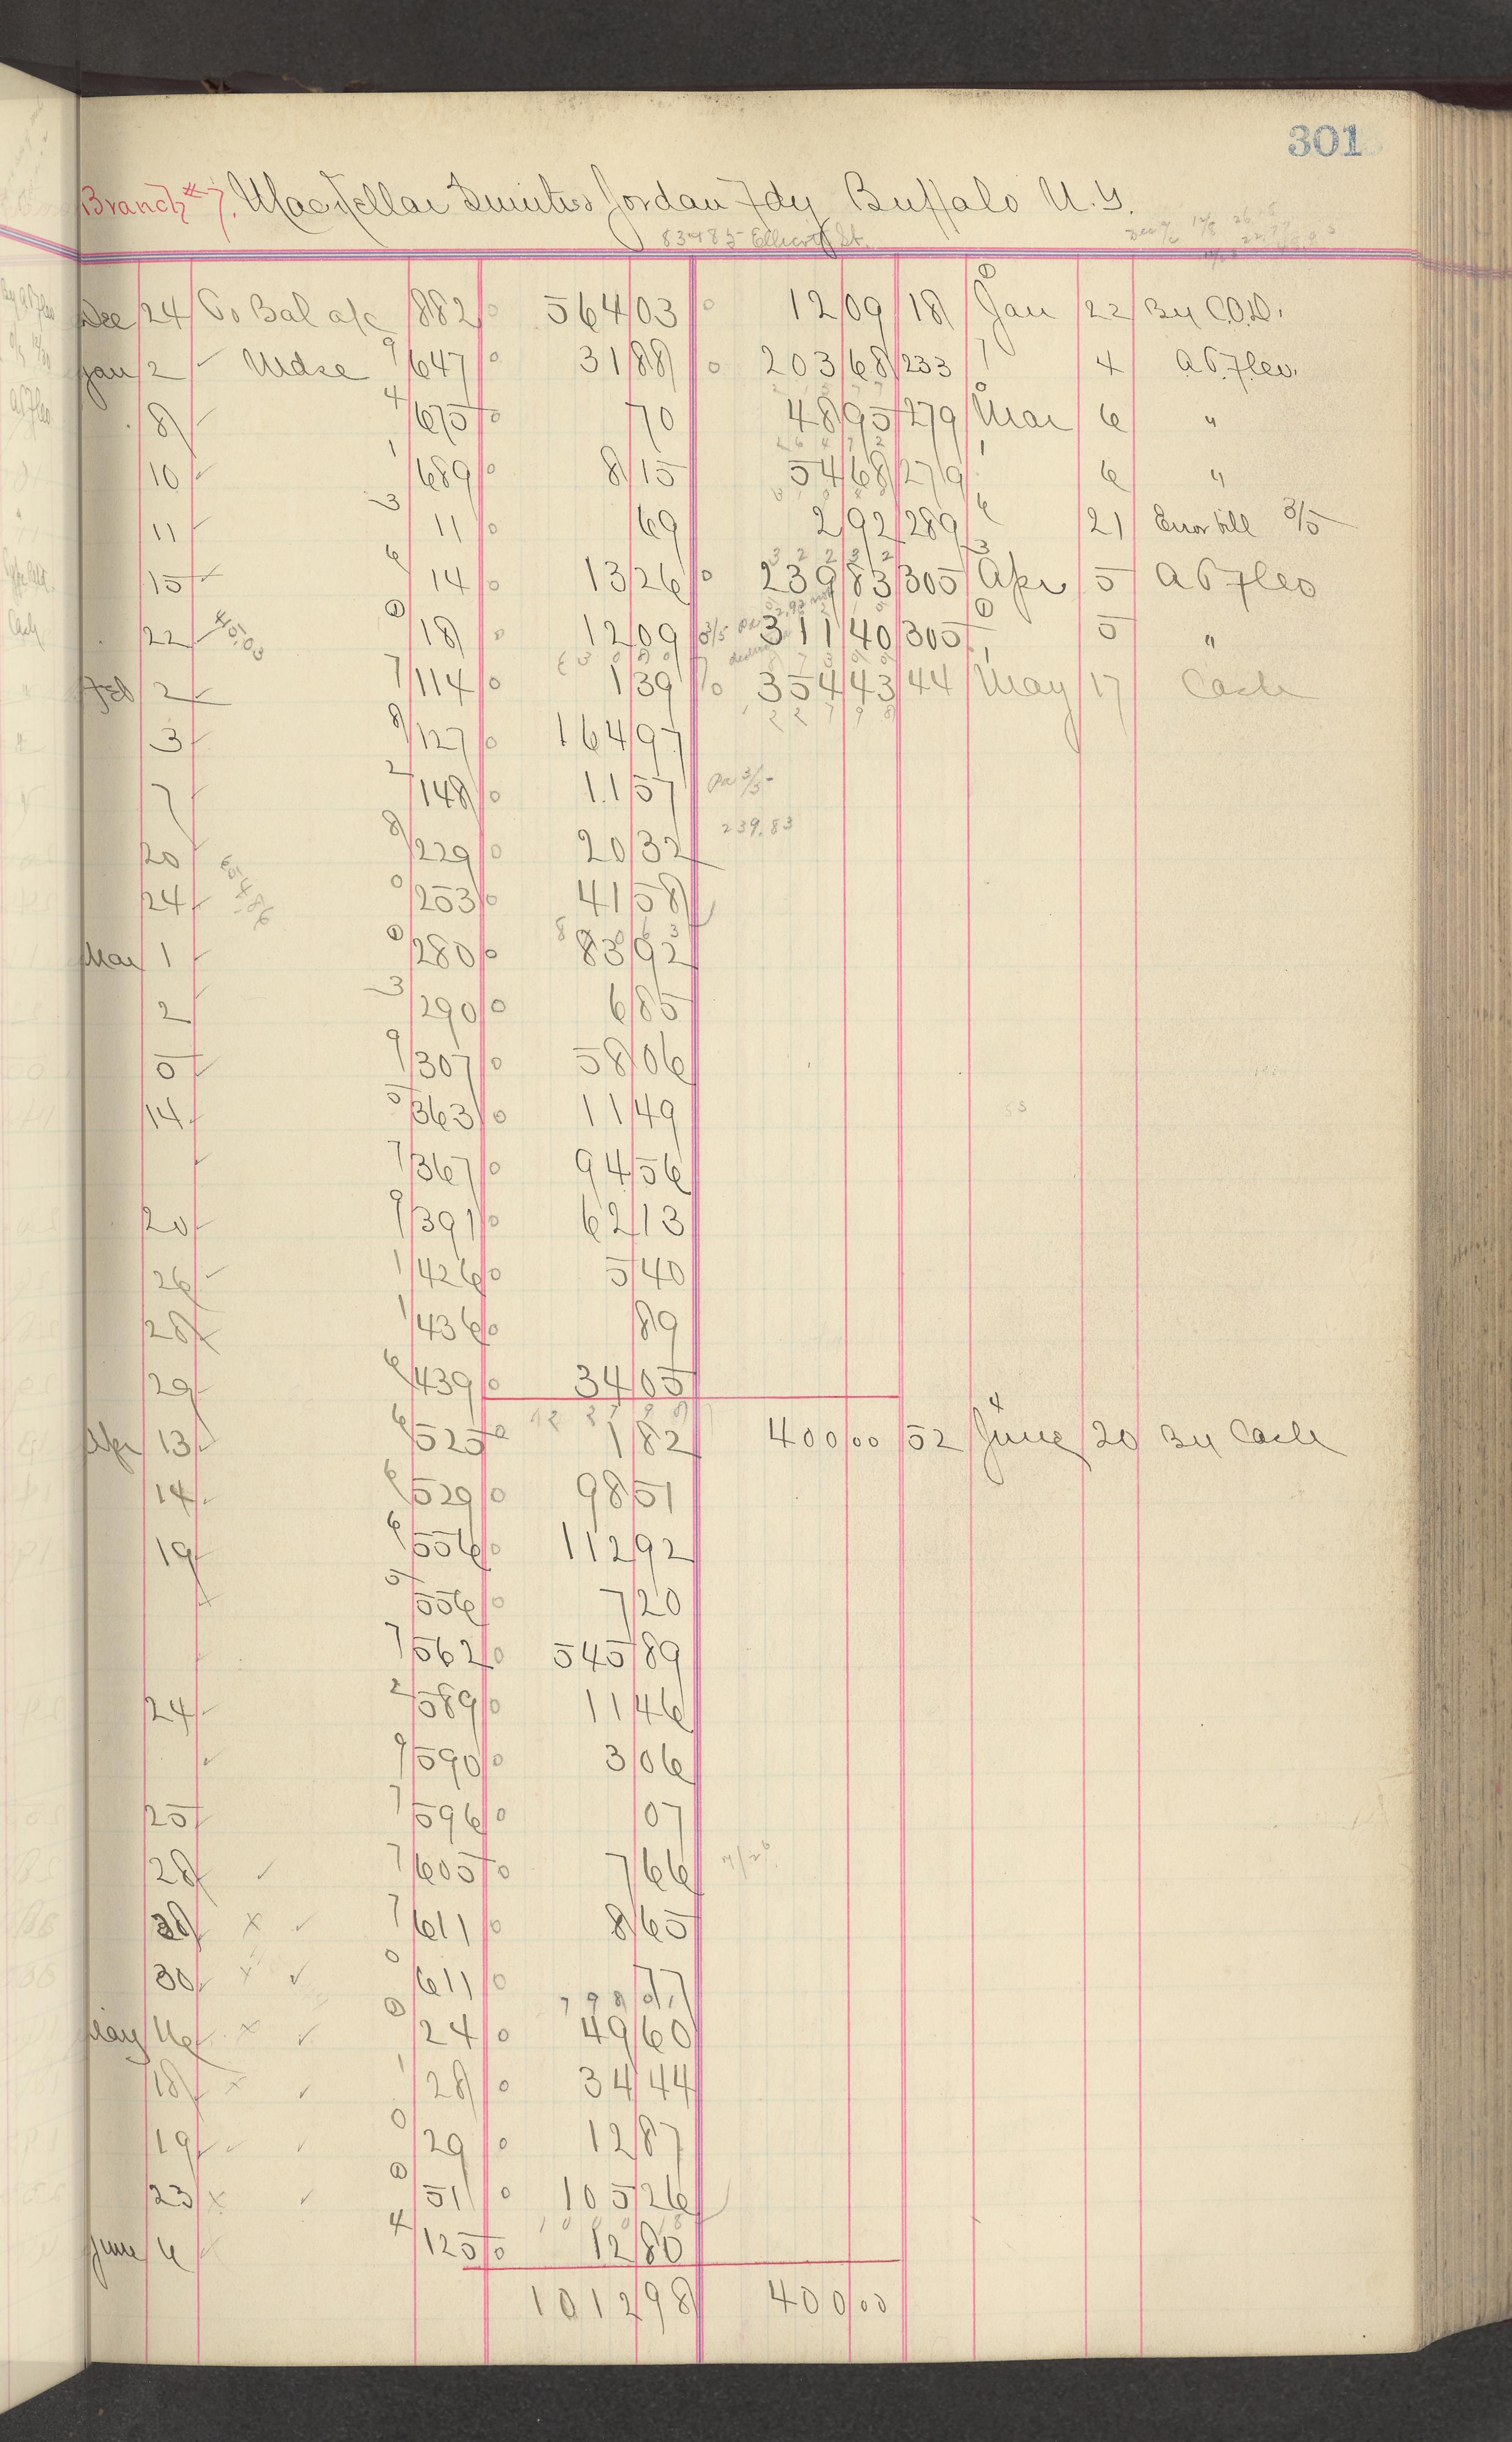 301
Branch #7. MacKellar Smiths Jordan Fdy Buffalo N.Y.
83 & 85 Ellicott St.
Dec 24 To Bal a/c 882 564 03 12 09 18 Jan 22 By C.O.D.
Jan 2 Mdse 9/647 31 88 203 68 233 4
8 4/675 70 48 95 279 Mar 6 "
10 1/689 8 15 54 68 279 6 "
11 3/11 69 2 92 289 21 Error bill 3/5
15 6/14 13 26 239 83 305 Apr 5
22 0/18 12 09 311 40 305 5 "
Feb 2 7/114 1 39 354 43 44 May 17 Cash
3 8/127 164 97
7 2/148 11 57 Pa 3/5
239.83
20 8/229 20 32
24 0/253 41 58
Mar 1 0/280 83 92
2 3/290 6 85
5 9/307 58 06
14 5/363 11 49
7/367 94 56
20 9/391 62 13
26 1/426 5 40
28 1/436 89
29 6/439 34 05
Apr 13 6/525 1 82 400 00 52 June 20 By Cash
14 6/529 98 51
19 6/556 112 92
5/556 7 20
7/562 545 89
24 2/589 11 46
9/590 3 06
25 7/596 07
28 7/605 7 66
28 x 7/611 8 65
30 x 0/611 77
May 16 x 0/24 49 60
18 x 1/28 34 44
19 0/29 12 87
23 x 0/51 105 26
June 6 4/125 12 80
1012 98 400 00